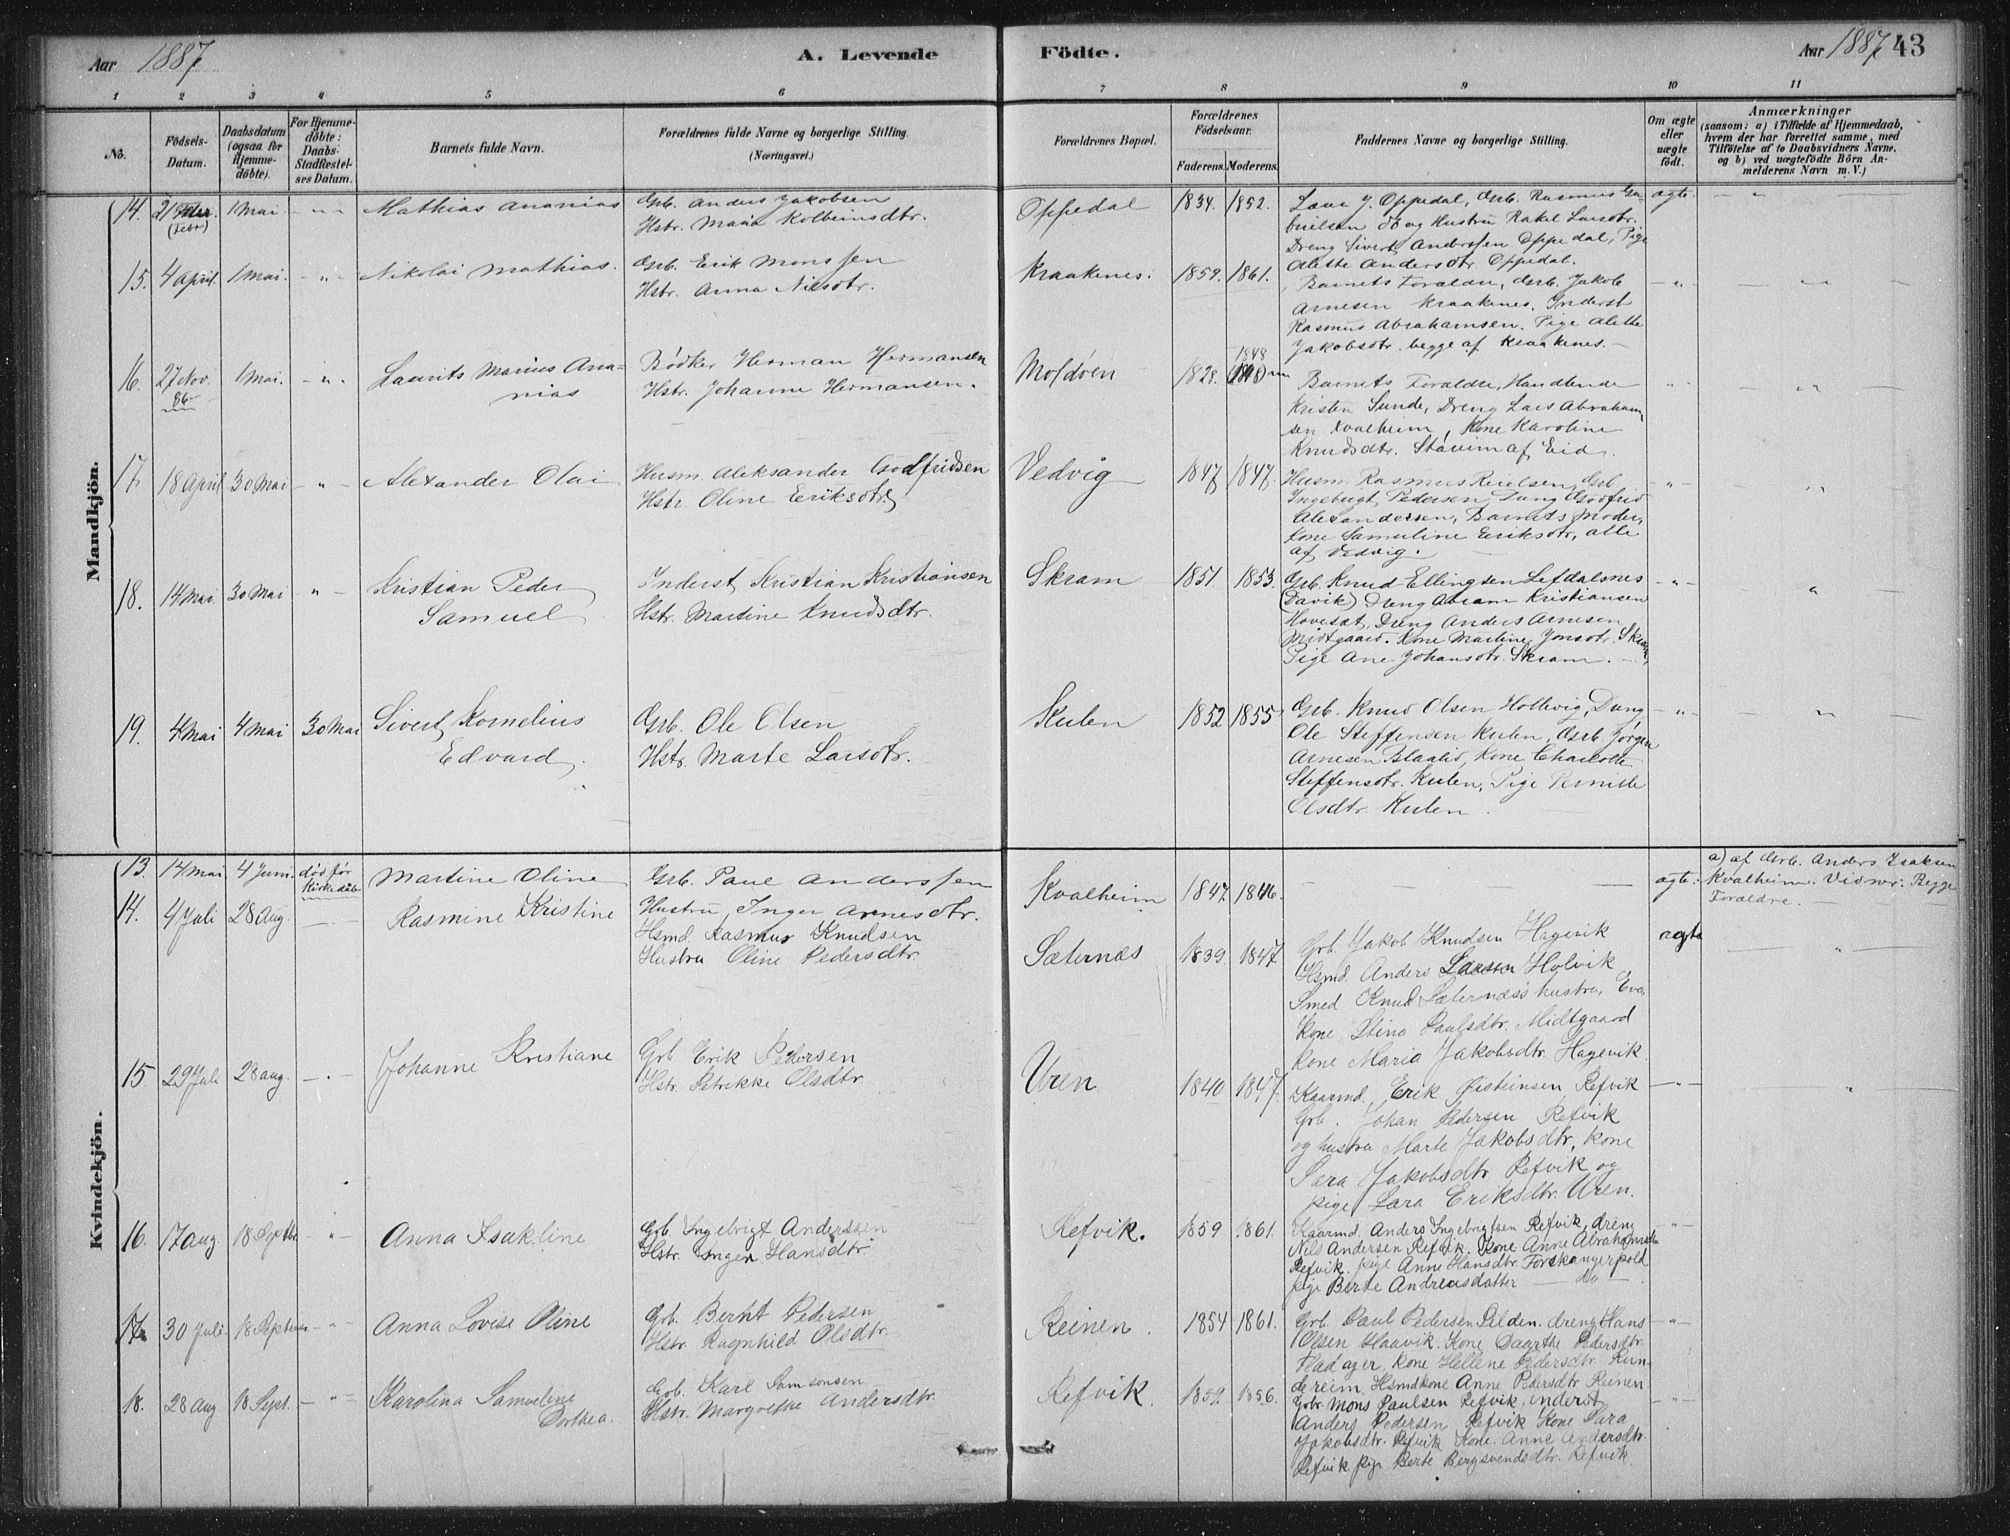 Aar 1887
A. Levende
Födte.
Aar 1887
43
1 2 3 4 5 6 7 8 9 10 11
No.
Födsels-
Datum.
Daabsdatum
(ogsaa for
Hjemme-
döbte).
For Hjemme-
döbte:
Daabs-
Stadfæstel-
ses Datum.
Barnets fulde Navn.
Forældrenes fulde Navne og borgerlige Stilling.
(Næringsvei.)
Forældrenes Bopæl.
Forældrenes
Födselsaar.
Faderens. Moderens.
Faddernes Navne og borgerlige Stilling.
Om ægte
eller
uægte
födt.
Anmærkninger
(saasom: a) i Tilfælde af Hjemmedaab,
hvem der har forrettet samme, med
Tilföielse af to Daabsvidners Navne,
og b) ved uægtefödte Börn An-
melderens Navn m. V.)
Mandkjön.
14. 21 (Febr) 1 Mai - " - Mathias Ananias
Grb. Anders Jakobsen
Hstr. Maria Kolbeinsdtr.
Oppedal 1834. 1852.
Lars J. Oppedal, Grb. Rasmus Ga-
brielsen do og Hustru Rakel Larsdtr.
Dreng Sivert Anderssen Oppedal, Pige
Alette Andersdtr Oppedal.
ægte - "
15. 4 April. 1 Mai. - " - Nikolai Mathias.
Grb. Erik Monssen
Hstr. Anna Nilsdtr.
Kraakenes. 1859. 1861.
Barnets Forældre, Grb. Jakob
Arnesen Kraakenes. Inderst
Rasmus Abrahamsen. Pige Alette
Jakobsdtr. begge af Kraakenes. -
- " -
16. 27 Nov. 86 1 Mai. - " - Laurits Marius Ana-
nias
Bödker Herman Hermansen
Hstr. Johanne Hermansen.
Moldöen 1828. 1848
Barnets Forældre, Handlende
Kristen Sunde, Dreng Lars Abraham-
sen Kvalheim, Kone Karoline
Knudsdtr. Stavim af Eid.
- " -
17. 18 April 30 Mai - " - Alexander Olai
Husm. Aleksander Godfridsen
Hstr. Oline Eriksdtr
Vedvig 1847 1847.
Husm. Rasmus Reielsen, Grb
Ingebrigt Pedersen, Dreng Godfrid
Alexandersen, Barnets Moder,
Kone Samueline Eriksdtr, alle
af Vedvig.
- " -
18. 14 Mai 30 Mai - " - Kristian Peder
Samuel
Inderst Kristian Kristiansen
Hstr. Martine Knudsdtr.
Skram 1851. 1853.
Grb. Knud Ellingsen Lefdalsnes
(Davik) Dreng Abram Kristiansen
Hovesæt, Dreng Anders Arnesen
Midtgaard. Kone Martine Jonsdtr. Skram,
Pige Ane Johansdtr. Skram. -
- " -
19. 4 Mai 4 Mai 30 Mai Sivert Kornelius
Edvard.
Grb. Ole Olsen
Hstr. Marte Larsdtr.
Kulen 1852 1855
Grb. Knud Olsen Hollevig, Dreng
Ole Steffensen Kulen, Grb. Jörgen
Arnesen Blaalid, Kone Charlotte
Steffensdtr. Kulen, Pige Pernille
Olsdtr. Kulen.
- " -
Kvindekjön.
13. 14 Mai 4 Juni död för
Kirkedåb
Martine Oline
Grb. Paul Anderssen
Hustru Inger Arnesdtr.
Kvalheim 1847 1846.
ægte.
a) af Grb. Anders Isaksen
Kvalheim. Vidner: Begge
Forældre.
14. 4 Juli 28 Aug. Rasmine Kristine
Hsmd. Rasmus Knudsen
Hustru Oline Pedersdtr
Sæternæs 1839. 1847
Grb. Jakob Knudsen Hagevik
Hsmd. Anders Larsen Holvik
Smed Knud Sæternæs's hustru, Eva
Kone Stina Paulsdtr. Midtgaard
Kone Maria Jakobsdtr. Hagevik.
ægte
15 29 Juli 28 aug. - " - Johanne Kristiane
Grb Erik Pedersen
Hstr. Petrikke Olsdtr.
Uren 1840 1847.
Kaarmd. Erik Eisteinsen Refvik
Grb. Johan Pedersen Refvik
og hustru Marte Jakobsdtr, kone
Sara Jakobsdtr Refvik og
pige Sara Eriksdtr. Uren.
- " -
16. 17 aug. 18 Septbr - " - Anna Isakline
Grb. Ingebrigt Anderssen
Hstr. Inger Hansdtr
Refvik. 1859 1861.
Kaarmd. Anders Ingebrigtsen Refvik, dreng
Nils Andersen Refvik. Kone Anne Abrahamsdtr
Refvik. pige Anne Hansdtr. Forskangerpold
pige Berte Andreasdatter - do -
- " -
17. 30 Juli 18 September - " - Anna Lovise Oline
Grb. Bernt Pedersen
Hstr. Ragnhild Olsdtr.
Reinen. 1854 1861.
Grb. Paul Pedersen Silden. dreng Hans
Olsen Haavik. Kone Dagrthe Pedersdtr.
Fladager. Kone Hellene Pedersdtr. Run-
dereim. Hsmdkone Anne Pedersdtr Reinen
- " -
18. 28 aug 18 Sept. - " - Karolina Samueline
Dorthea.
Grb. Karl Samsonsen
Hstr. Margrethe Andersdtr.
Refvik 1859. 1856.
Grbr. Mons Paulsen Refvik, inderst
Anders Pedersen Refvik Kone Sara
Jakobsdtr. Refvik Kone. Anne Andersdtr.
Refvik. pige Berte Bergsvendsdtr. Refvik
- " -